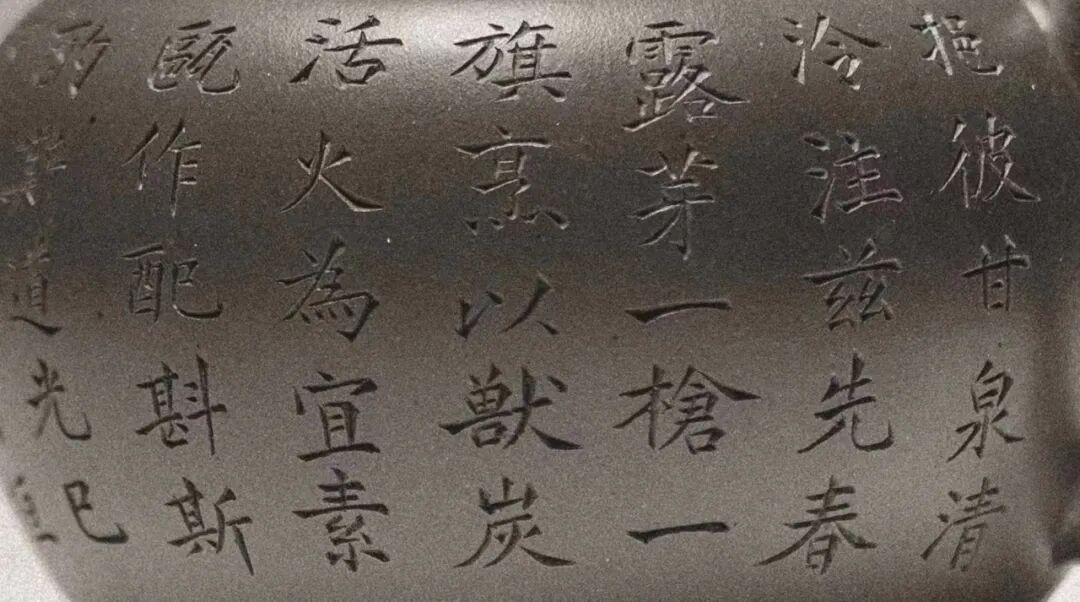 挹彼甘泉清
泠注茲先春
露芽一槍一
旗烹以獸炭
活火為宜素
甌作配斟斯
酌
道光
巳